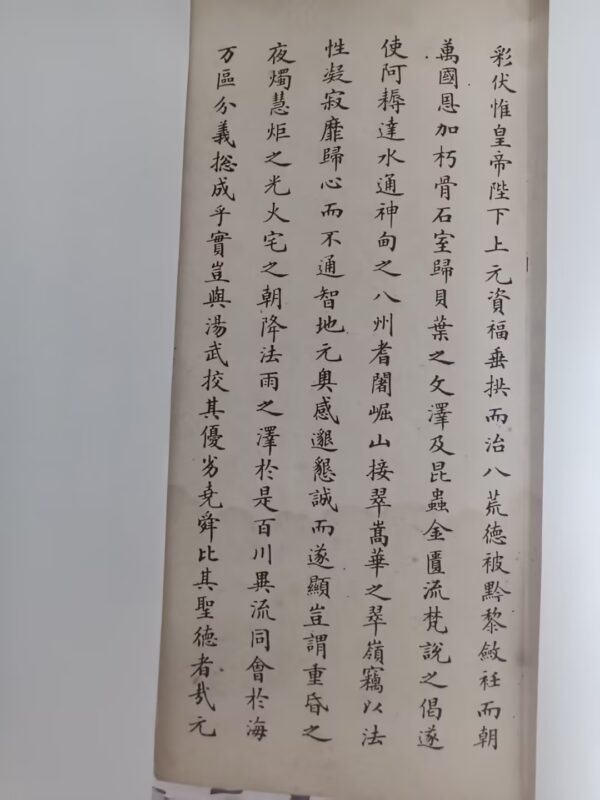 彩伏惟皇帝陛下上元資福垂拱而治八荒德被黔黎斂衽而朝
萬國恩加朽骨石室歸貝葉之文澤及昆蟲金匱流梵說之偈遂
使阿耨達水通神甸之八州耆闍崛山接翠嵩華之翠嶺竊以法
性凝寂靡歸心而不通智地元奥感邈懇誠而遂顯豈謂重昏之
夜燭慧炬之光火宅之朝降法雨之澤於是百川異流同會於海
万區分義捴成乎實豈與湯武挍其優劣堯舜比其聖德者㢤元